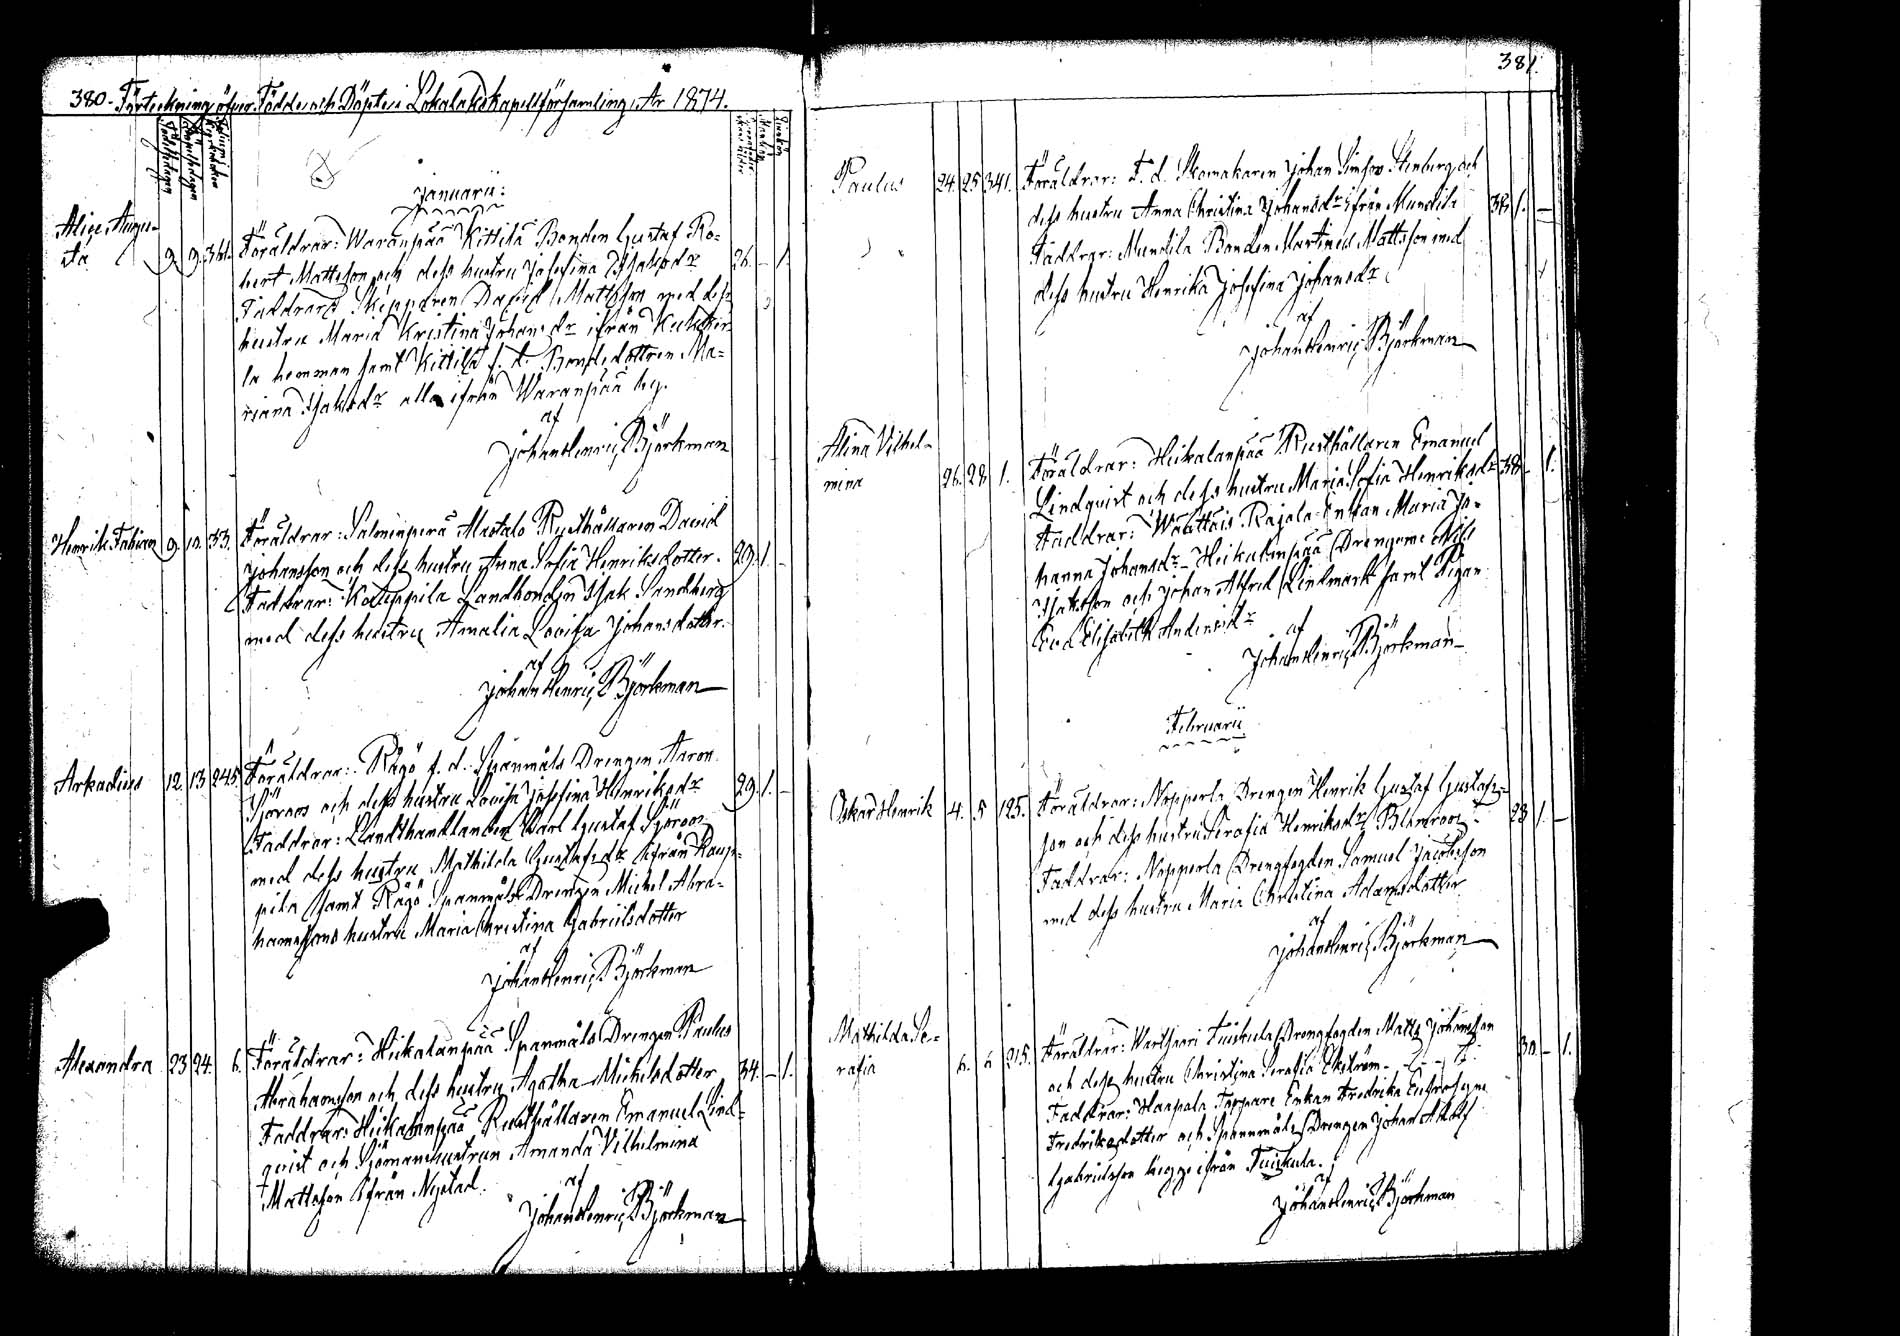 380. Förteckning öfver Födde och Döpte i Lokalaks Kapellförsamling, År 1874.
Januarii:
Alice Augus-
ta 9. 9. 361. Föräldrar: Waranpää Kittilä Bonden Gustaf Ro- 26. – 1.
bert Mattsson och dess hustru Josefina Isaksdr
Faddrar: Skepparen David Mattsson med dess
hustru Maria Kristina Johansdr ifrån
la hemman samt Kittilä f. d. Bondedottren Ma-
riana Isaksdr alla ifrån Waranpää by.
af
Johan Henric Björkman
Henrik Fabian 9. 10. 53. Föräldrar: Salminperä Alastalo Rusthållaren David 29. 1. –
Johansson och dess hustru Anna Sofia Henriksdotter.
Faddrar: Kauppila Landbonden Isak Sandberg
med dess hustru Amalia Lovisa Johansdotter.
af
Johan Henric Björkman
Arkadius 12. 13. 245. Föräldrar: Rågö f. d. Spanmåls Drengen Aaron 29. 1. –
Sjöroos och dess hustru Lovisa Josefina Henriksdr
Faddrar: Landthandlanden Karl Gustaf Sjöroos
med dess hustru Mathilda Gustafsdr ifrån Kaup-
pila samt Rågö Spanmåls Drengen Michel Abra-
hamssons hustru Maria Christina Gabrielsdotter
af
Johan Henric Björkman
Alexandra 23 24. 6. Föräldrar: Heikalanpää Spanmåls Drengen Paulus 34. – 1.
Abrahamsson och dess hustru Agatha Michelsdotter
Faddrar: Heikalanpää Rusthållaren Emanuel Lind-
qvist och Sjömanshustrun Amanda Vilhelmina
Mattsson ifrån Nystad.
af
Johan Henric Björkman
381.
Paulus 24. 25 341. Föräldrar: F. d. Skomakaren Johan Simson Stenberg och
dess hustru Anna Christina Johansdr ifrån Mundila 38 1. –
Faddrar: Mundila Bonden Martinus Mattsson med
dess hustru Henrika Josefina Johansdr
af
Johan Henric Björkman
Alina Vilhel-
mina 26. 28 1. Föräldrar: Heikalanpää Rusthållaren Emanuel
Lindqvist och dess hustru Maria Sofia Henriksdr 38 – 1.
Faddrar: Rajala Enkan Maria Jo-
hanna Johansdr – Heikalanpää Drengarne Nils
Isaksson och Johan Alfred Lindmark samt Pigan
Eva Elisabeth Andersdr
af
Johan Henric Björkman
Februarii
Oskar Henrik 4. 5 125. Föräldrar: Nopperla Drengen Henrik Gustaf Gustafs-
son och dess hustru Serafia Henriksdr Blomroos. 23 1. –
Faddrar: Nopperla Drengfogden Samuel Jacobsson
med dess hustru Maria Christina Adamsdotter
af
Johan Henric Björkman
Mathilda Se-
rafia 6. 6 215. Föräldrar: Wartsaari Tuiskula Drengfogden Matts Johansson 30. – 1.
och dess hustru Christina Serafia Ekström
Faddrar: Haapala Torpare Enkan Fredrika Eufrosyne
Fredriksdotter och Spannmåls Drengen Johan Adolf
Gabrielsson begge ifrån Tuiskula.
af
Johan Henric Björkman